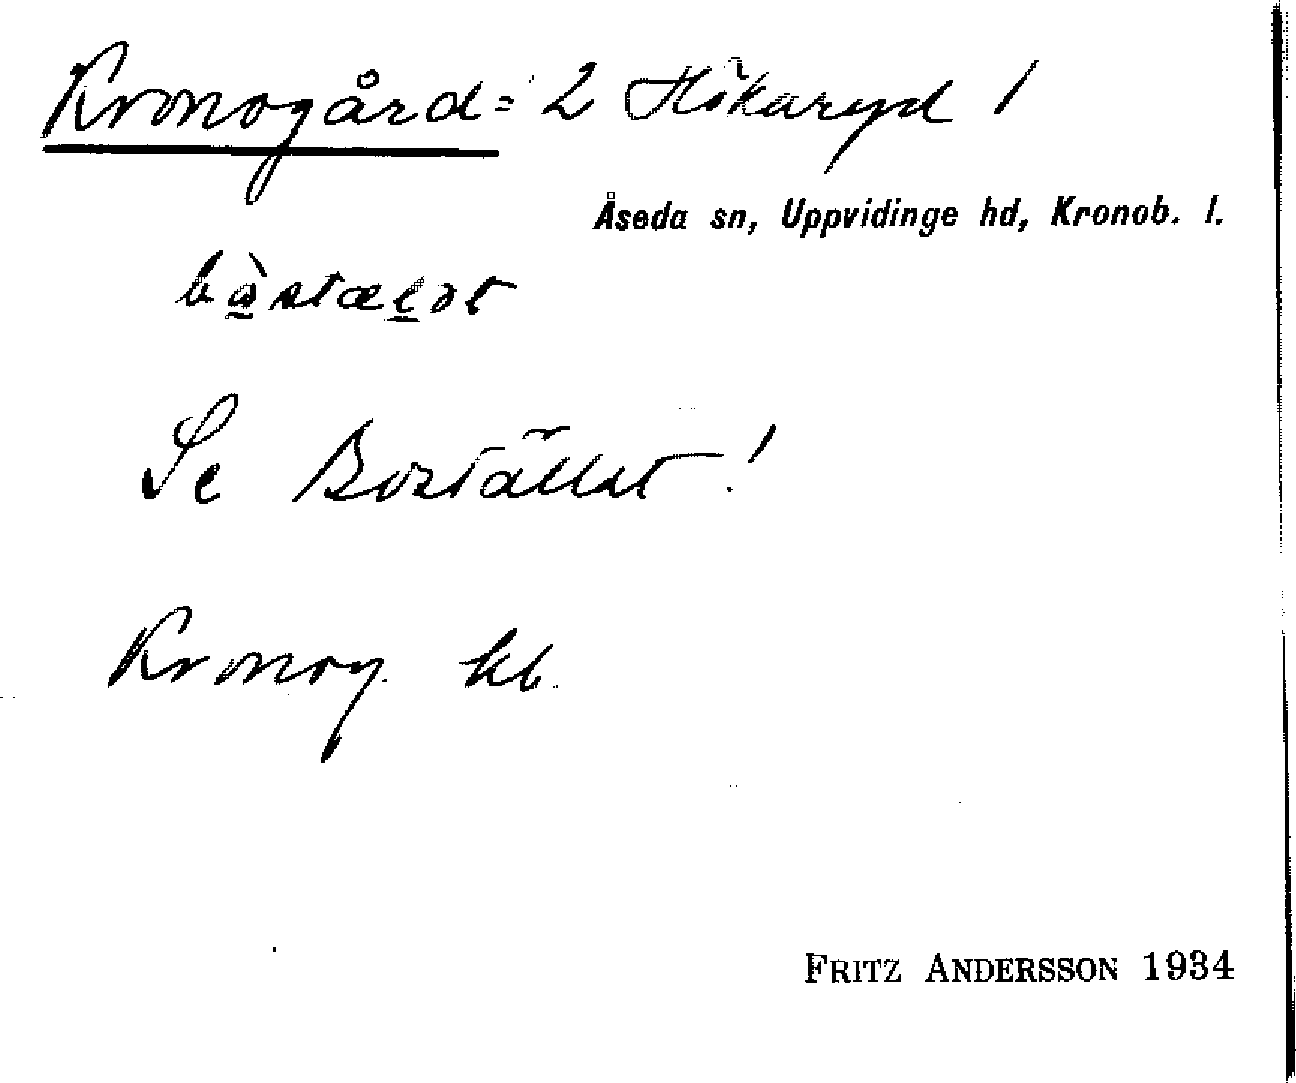 Kronogård = 2 Hökaryd 1
Åseda sn, Uppvidinge hd, Kronob. l.
Se Bostället!
Kronog. kb.
FRITZ ANDERSSON 1934